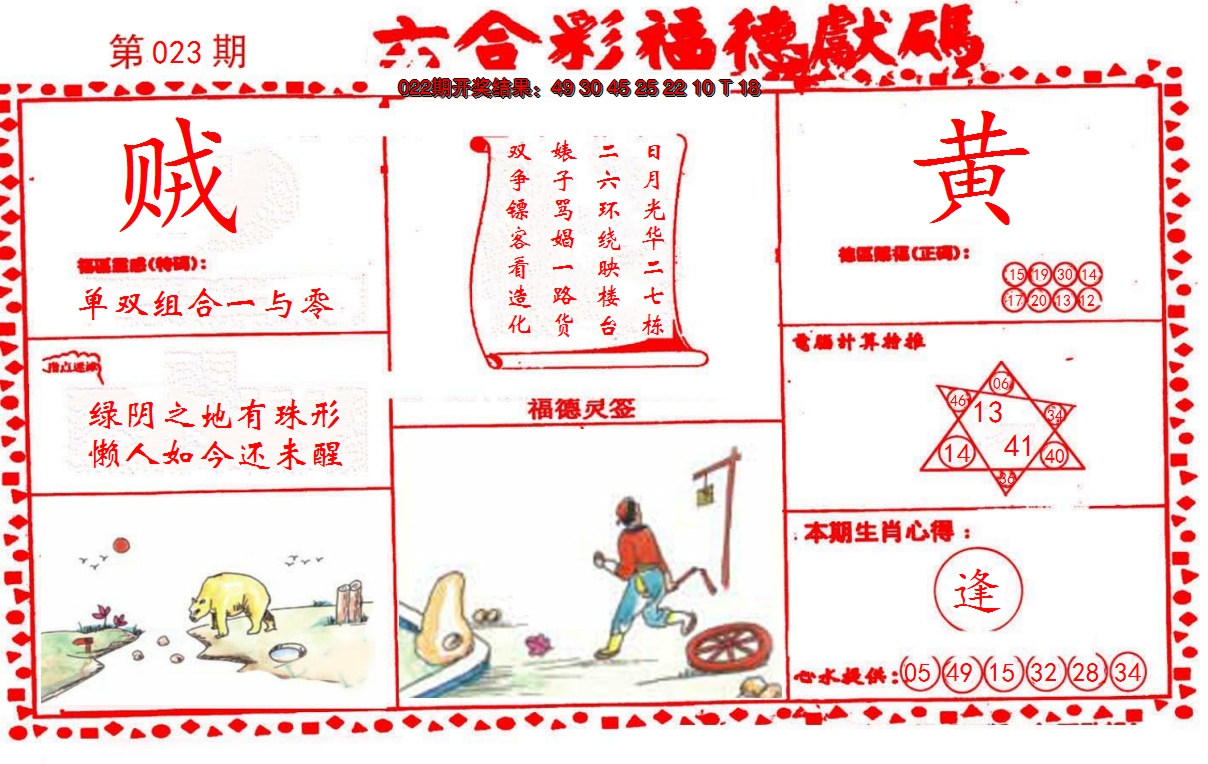 第 023 期
六合彩福德獻碼
022期开奖结果：49 30 45 25 22 10 T 18
贼
福區靈感(特碼)：
单双组合一与零
指点迷津
绿阴之地有珠形
懒人如今还未醒
日月光华二七栋
二六环绕映楼台
婊子骂娼一路货
双争镖客看造化
福德灵签
黄
德區賜福(正碼)：
15 19 30 14
17 20 13 12
電腦計算推
06
46 13 34
14 41 40
36
本期生肖心得：
逢
心水提供：05 49 15 32 28 34